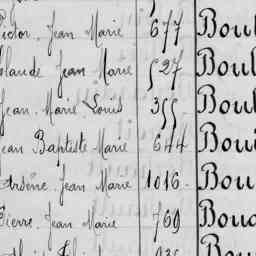 Victor, Jean Marie 677 Boul
Claude Jean Marie 527 Boul
Jean Marie Louis 355 Boul
Jean Baptiste Marie 644 Boui
Arsène, Jean Marie 1016 Bou
Pierre, Jean Marie 769 Bouc
Bou